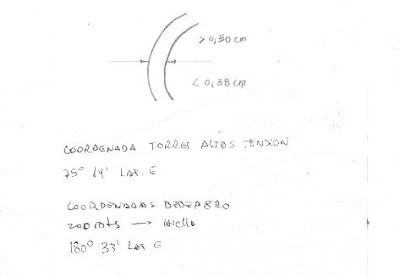 > 0,50 cm
< 0,38 cm
COORDENADA TORRES ALTAS TENSION
75° 14' LAT. E
COORDENADAS
200 mts →
180° 33' LAT E